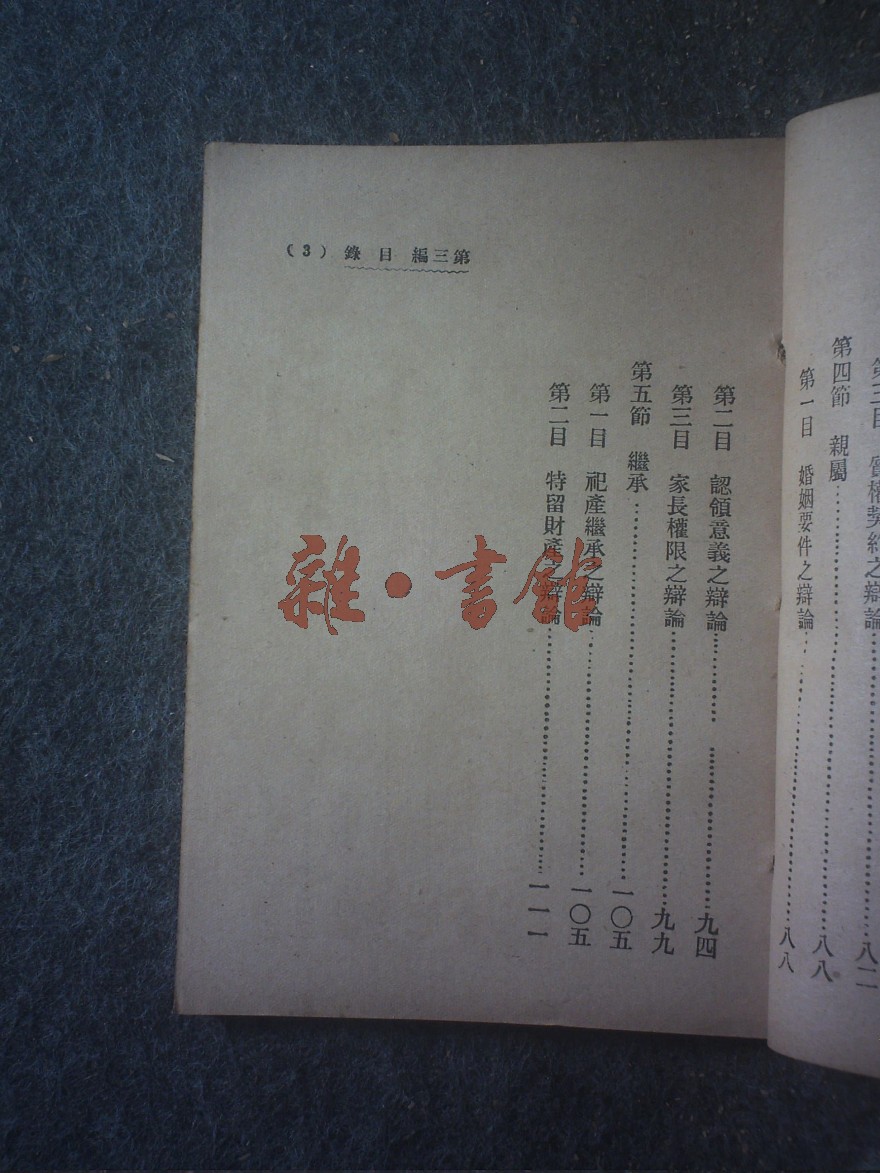 第三目 質權契約之辯論……八二
第四節 親屬……八八
第一目 婚姻要件之辯論……八八
第三編 目錄 (3)
第二目 認領意義之辯論……九四
第三目 家長權限之辯論……九九
第五節 繼承……一〇五
第一目 祀產繼承之辯論……一〇五
第二目 特留財產之辯論……一一一
雜·書館